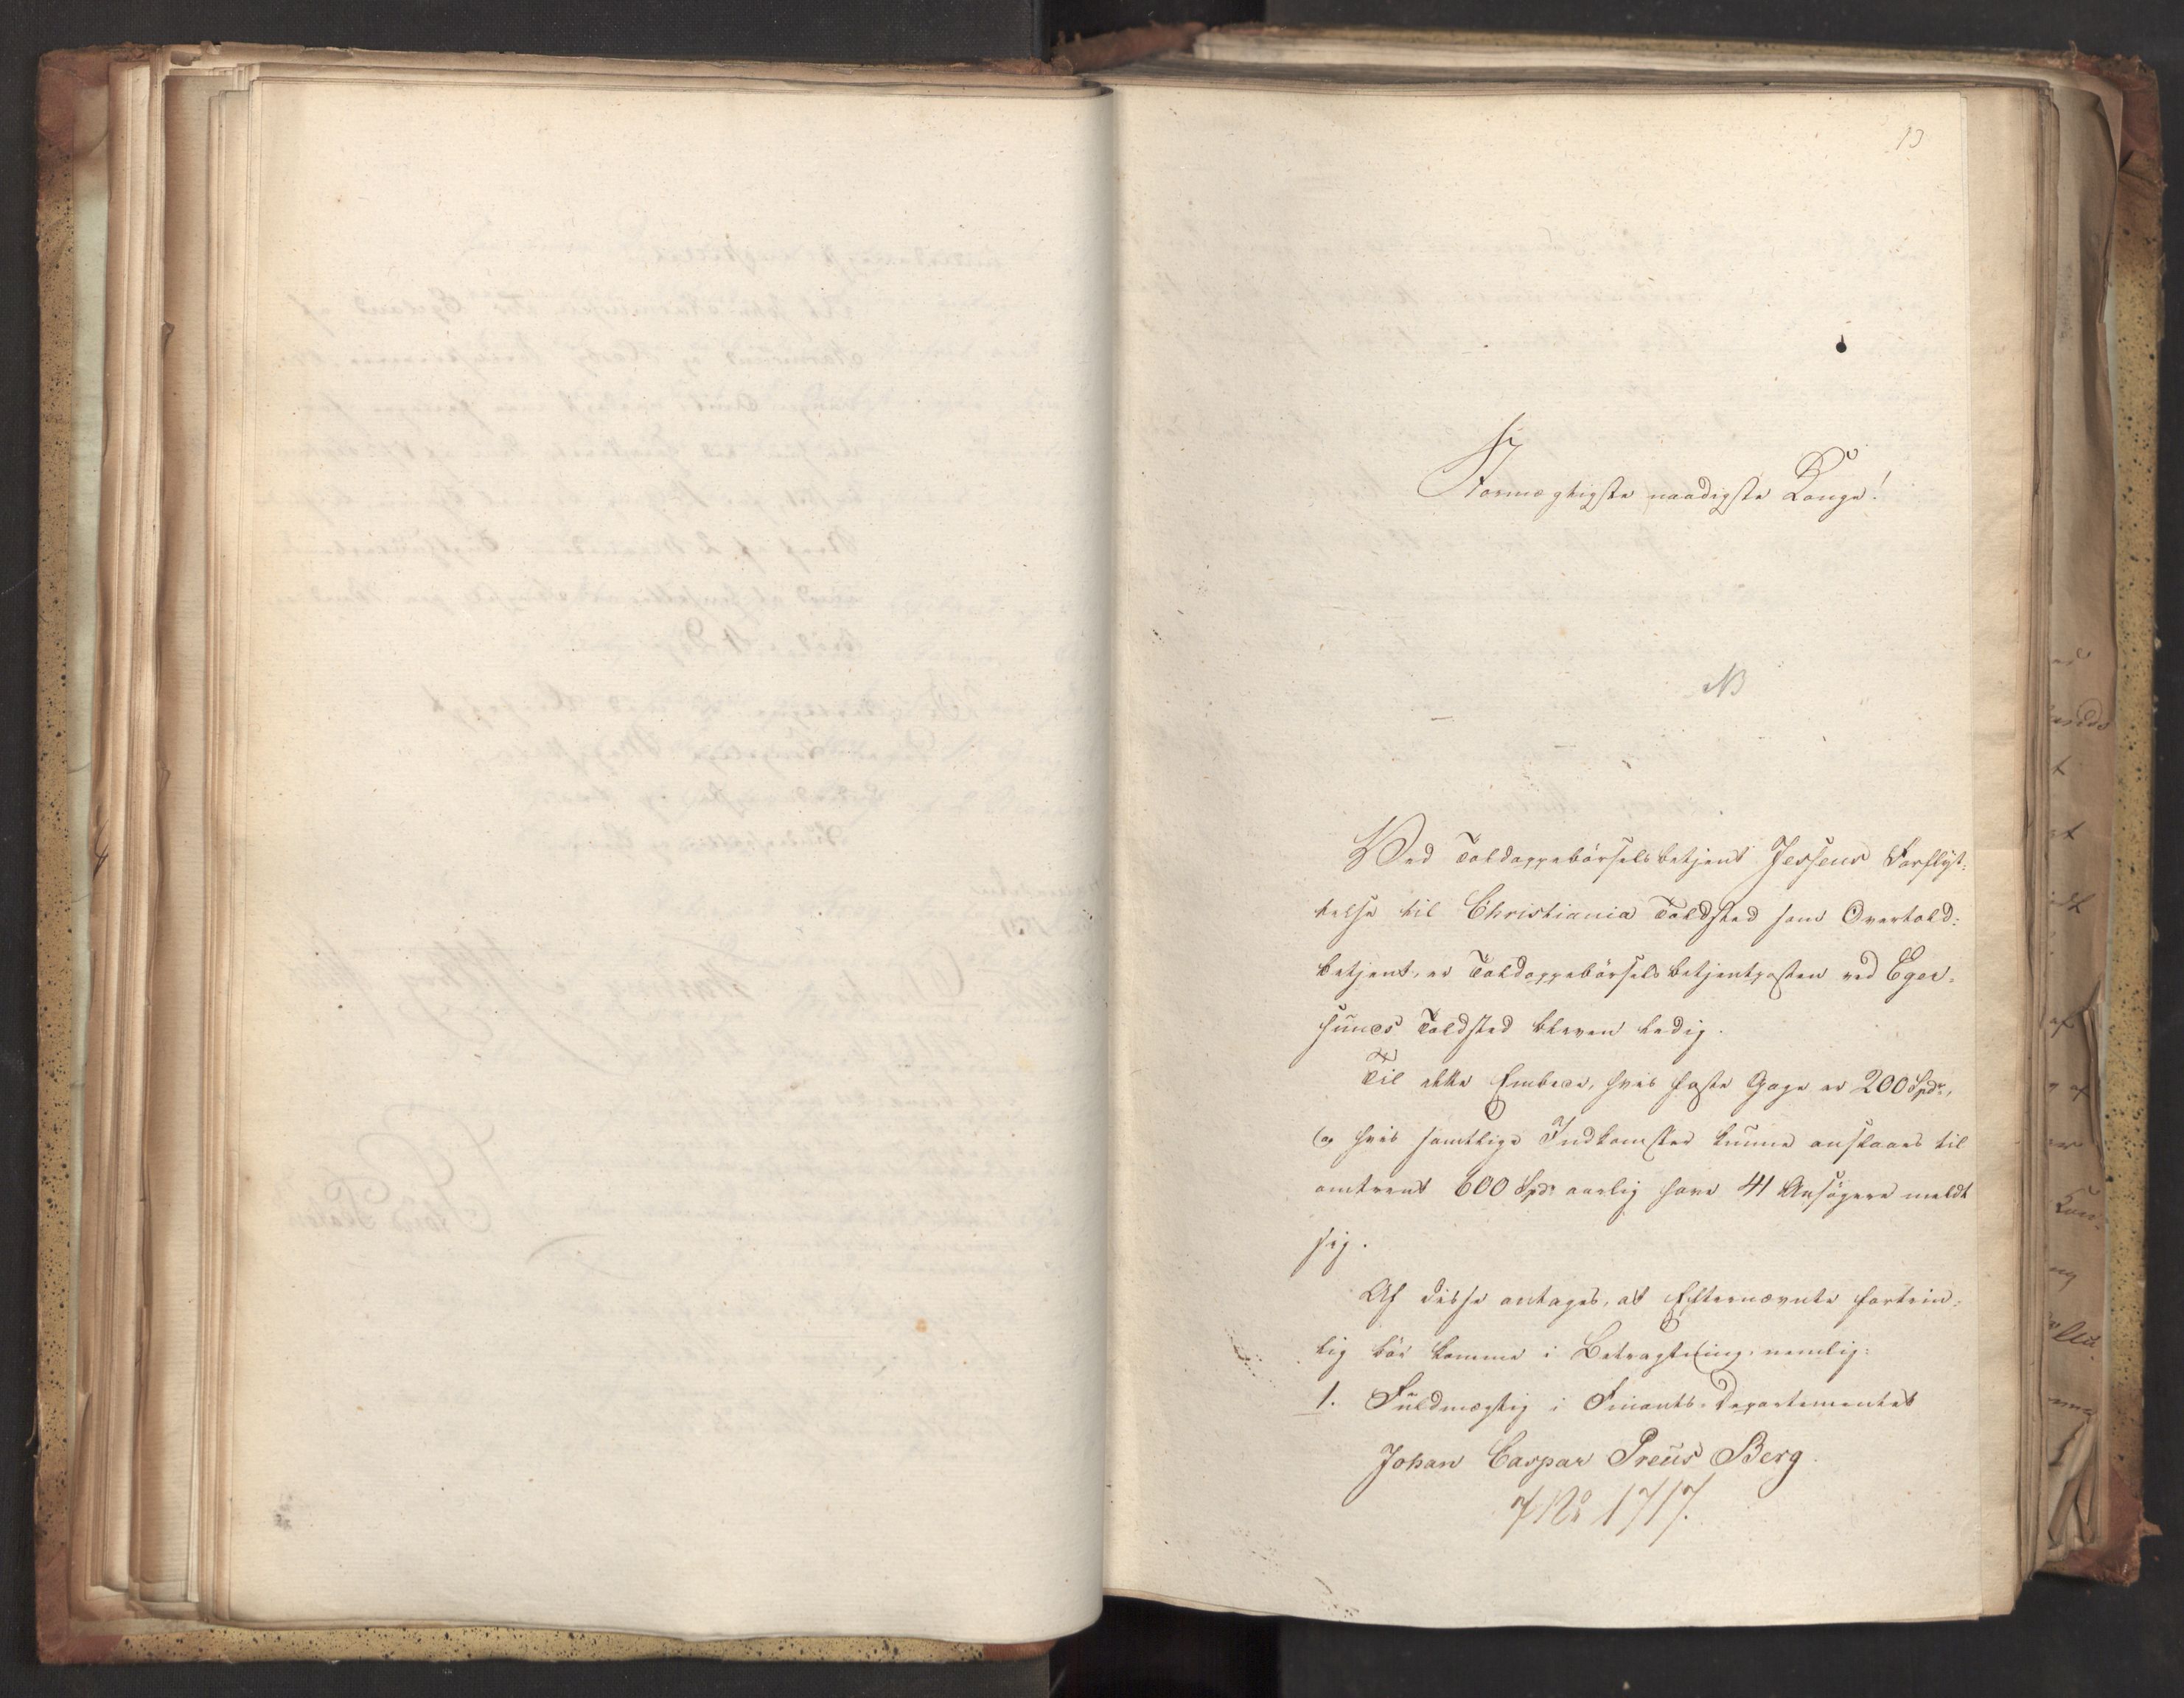 13
Stormægtigste naadigste Konge!
NB
Ved Toldoppebörselsbetjent Jersens Forflyt-
telse til Christiania Toldsted som Overtold-
betjent, er Toldoppebörselsbetjentposten ved Eger-
sunds Toldsted bleven ledig.
Til dette Embede, hvis faste Gage er 200 Spdr,
og hvis samtlige Indkomster kunne anslaaes til
omtrent 600 Spdr aarlig have 41 Ansögere meldt
sig.
Af disse antages, at Efternævnte fortrin-
lig bör komme i Betragtning, nemlig:
1. Fuldmægtig i Finants-Departementet
Johan Caspar Preus Berg.
No 1717.